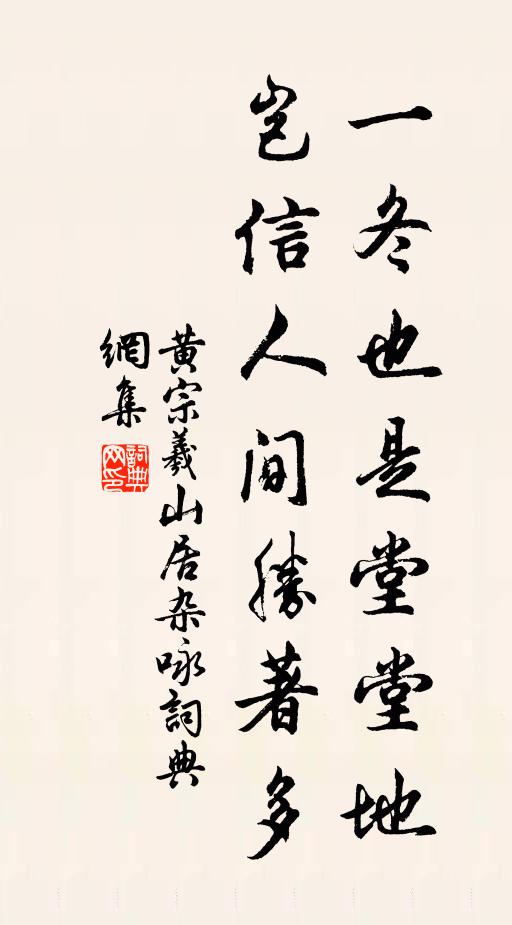 一冬也是堂堂地
岂信人间勝著多
黄宗羲山居杂咏詞典
網集
詞典网印